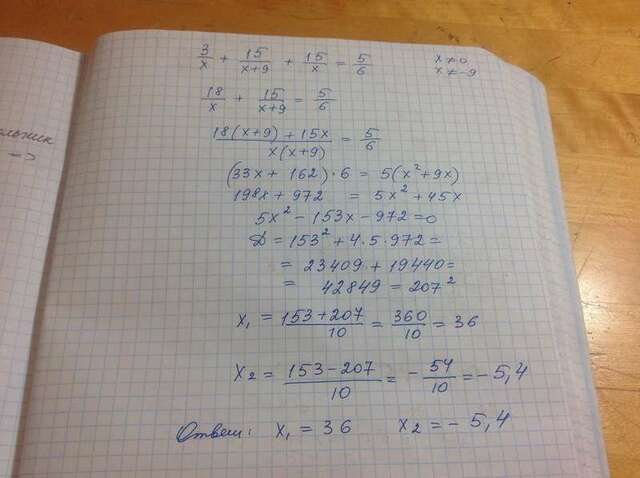 3/x + 15/(x+9) + 15/x = 5/6 x ≠ 0
x ≠ -9
18/x + 15/(x+9) = 5/6
(18(x+9) + 15x)/(x(x+9)) = 5/6
(33x + 162) · 6 = 5(x² + 9x)
198x + 972 = 5x² + 45x
5x² - 153x - 972 = 0
D = 153² + 4·5·972 =
= 23409 + 19440 =
= 42849 = 207²
x₁ = (153 + 207)/10 = 360/10 = 36
x₂ = (153 - 207)/10 = -54/10 = -5,4
Ответ: x₁ = 36 x₂ = -5,4